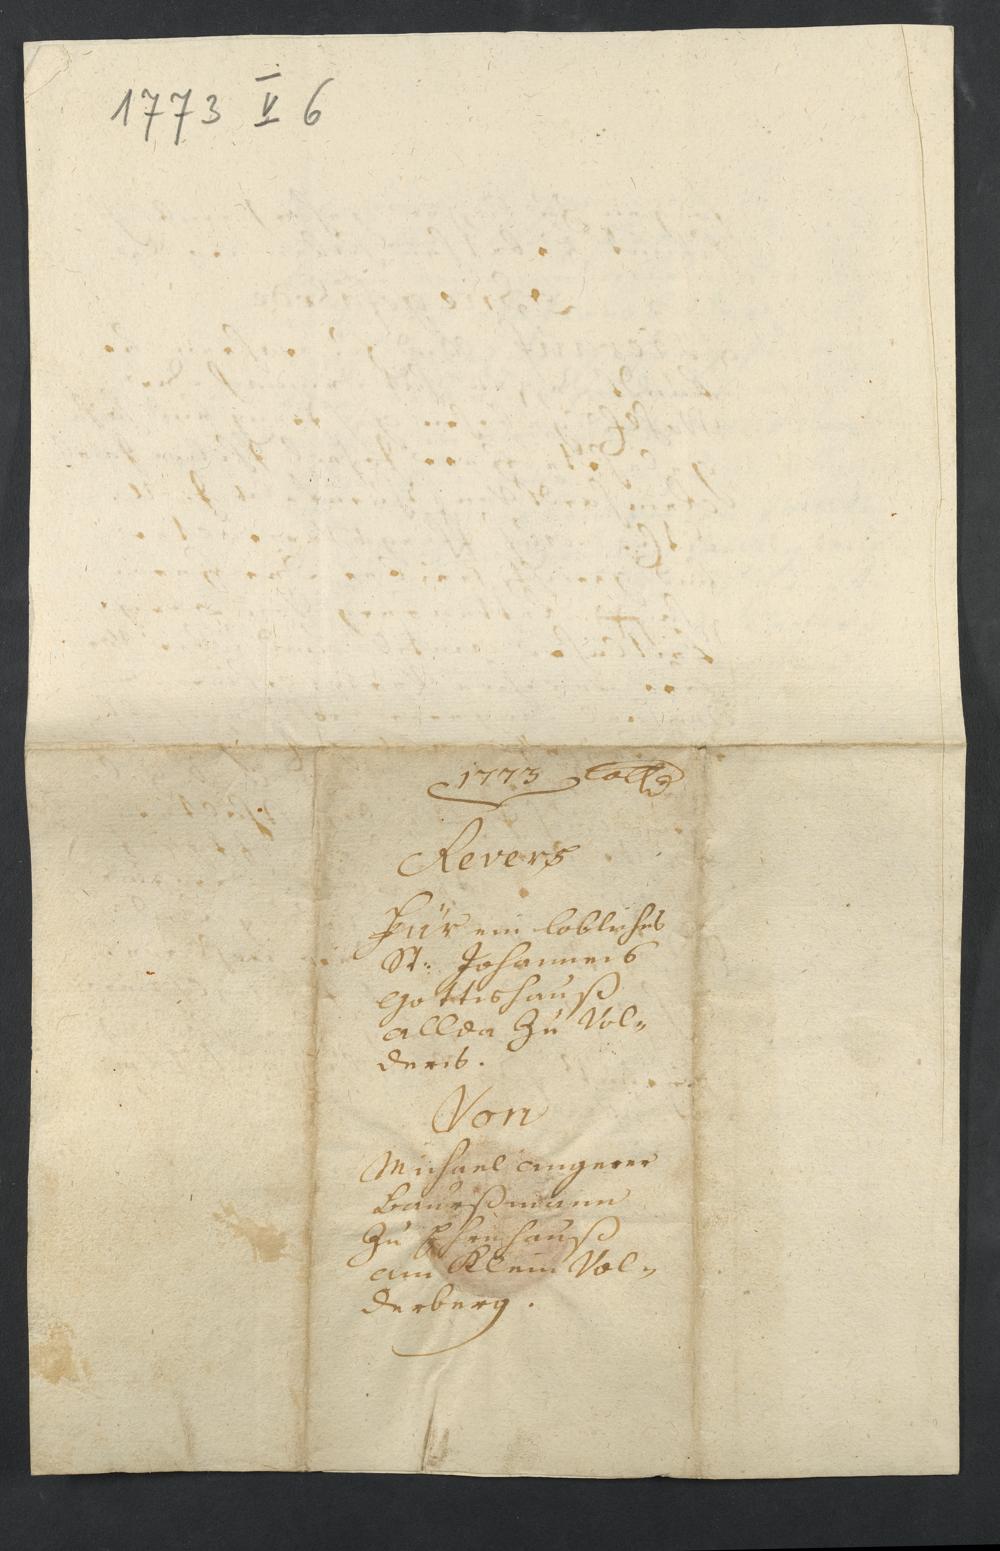 1773 V 6
1773
Revers
Für ein lobliches
St: Johanneis
Gottishauß
allda zu Vol„
ders.
Von
Michael Angerer
Baurßmann
zu
am Klein Vol„
derberg.